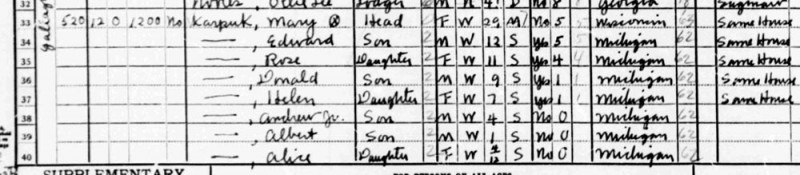 32 Lodger M N D No 8 Georgia Saginaw
33 520 12 0 1200 No Karpuk, Mary Head F W 29 M No 5 Wisconsin Same House
34 — , Edward Son M W 12 S Yes 5 Michigan 62 Same House
35 — , Rose Daughter F W 11 S Yes 4 Michigan 62 Same House
36 — , Donald Son M W 9 S Yes 1 Michigan 62 Same House
37 — , Helen Daughter F W 7 S Yes 1 Michigan 62 Same House
38 — , Andrew Jr. Son M W 4 S No 0 Michigan 62
39 — , Albert Son M W 1 S No 0 Michigan 62
40 — , Alice Daughter F W S No 0 Michigan 62
SUPPLEMENTARY
FOR PERSONS OF ALL AGES